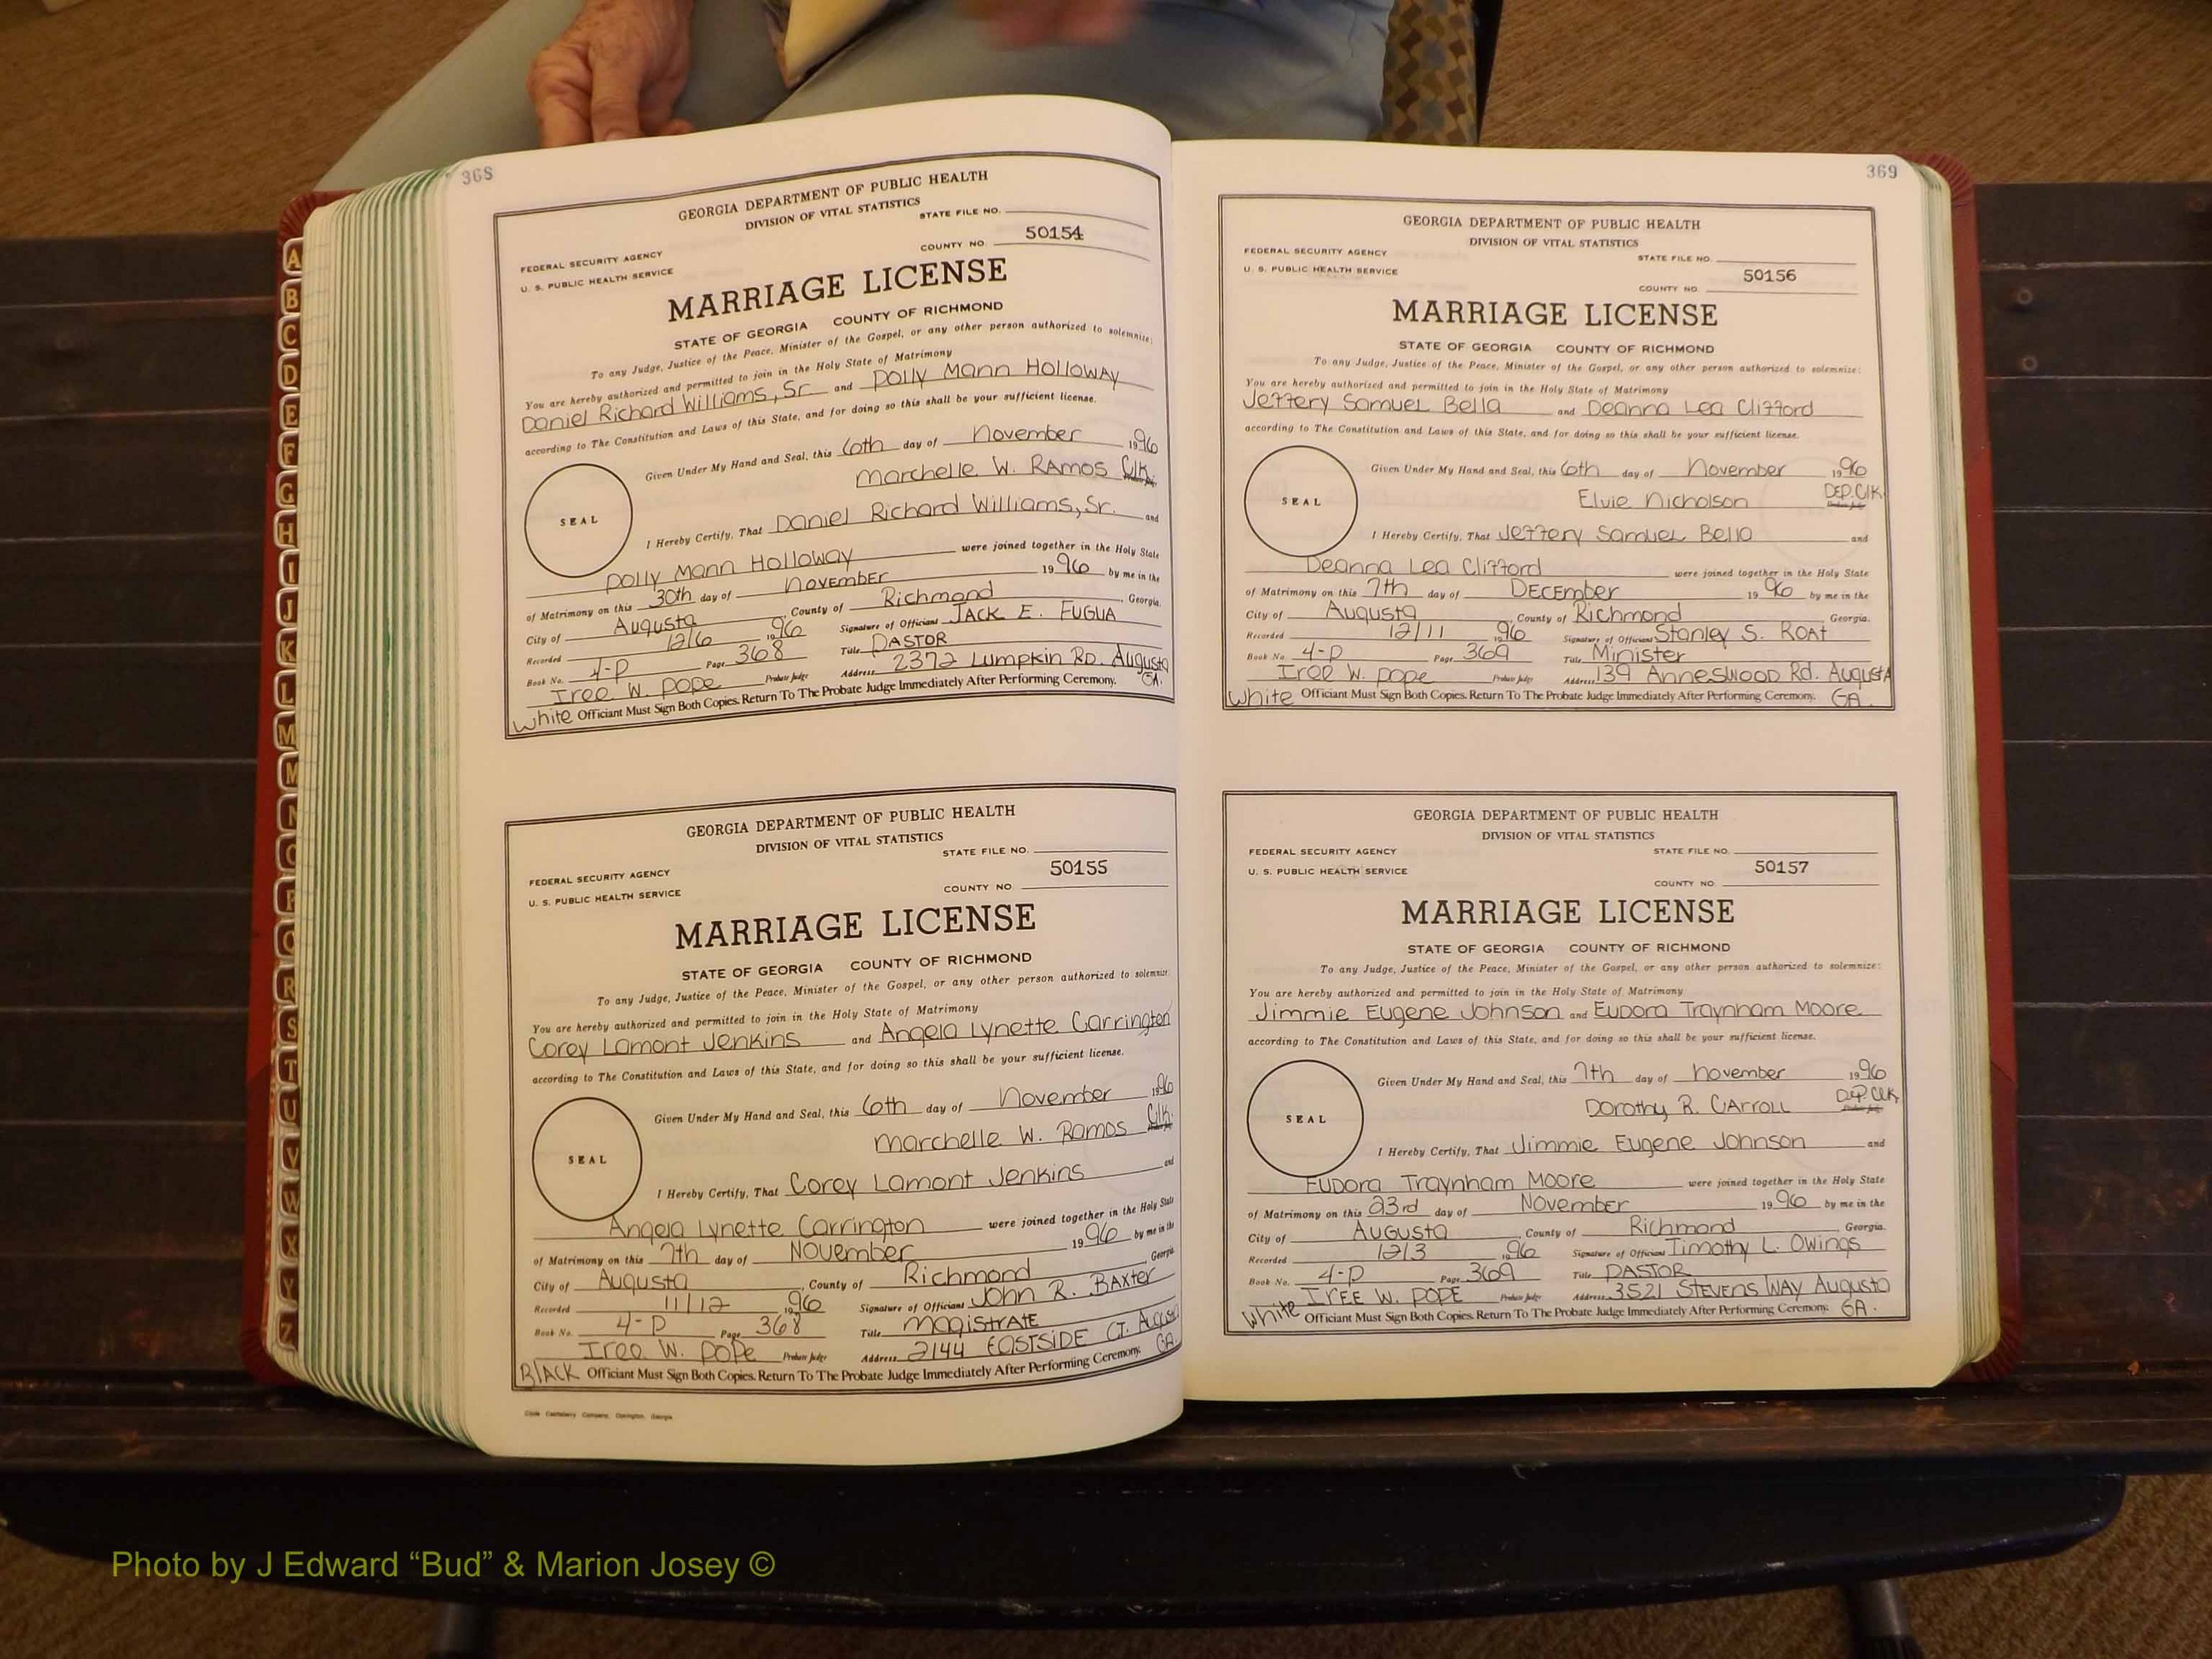 368
GEORGIA DEPARTMENT OF PUBLIC HEALTH
DIVISION OF VITAL STATISTICS
STATE FILE NO.
50154
COUNTY NO.
FEDERAL SECURITY AGENCY
U. S. PUBLIC HEALTH SERVICE
MARRIAGE LICENSE
STATE OF GEORGIA COUNTY OF RICHMOND
To any Judge, Justice of the Peace, Minister of the Gospel, or any other person authorized to solemnize:
You are hereby authorized and permitted to join in the Holy State of Matrimony
Daniel Richard Williams, Sr. and Polly Mann Holloway
according to The Constitution and Laws of this State, and for doing so this shall be your sufficient license.
Given Under My Hand and Seal, this 6th day of November 1996
Marchelle W. Ramos Clk.
SEAL
I Hereby Certify, That Daniel Richard Williams, Sr. and
Polly Mann Holloway were joined together in the Holy State
of Matrimony on this 30th day of November 1996 by me in the
City of Augusta, County of Richmond, Georgia.
Recorded 12/6 1996 Signature of Officiant JACK E. FUGLIA
Book No. 4-P Page 368 Title PASTOR
Iree W. Pope Probate Judge Address 2372 Lumpkin RD. Augusta GA.
White Officiant Must Sign Both Copies. Return To The Probate Judge Immediately After Performing Ceremony.
GEORGIA DEPARTMENT OF PUBLIC HEALTH
DIVISION OF VITAL STATISTICS
STATE FILE NO.
50155
COUNTY NO
FEDERAL SECURITY AGENCY
U. S. PUBLIC HEALTH SERVICE
MARRIAGE LICENSE
STATE OF GEORGIA COUNTY OF RICHMOND
To any Judge, Justice of the Peace, Minister of the Gospel, or any other person authorized to solemnize:
You are hereby authorized and permitted to join in the Holy State of Matrimony
Corey Lamont Jenkins and Angela Lynette Carrington
according to The Constitution and Laws of this State, and for doing so this shall be your sufficient license.
Given Under My Hand and Seal, this 6th day of November 1996
Marchelle W. Ramos Clk.
SEAL
I Hereby Certify, That Corey Lamont Jenkins and
Angela Lynette Carrington were joined together in the Holy State
of Matrimony on this 7th day of November 1996 by me in the
City of Augusta, County of Richmond Georgia
Recorded 11/12 1996 Signature of Officiant John R. Baxter
Book No. 4-P Page 368 Title Magistrate
Iree W. Pope Probate Judge Address 2144 Eastside Ct. Augusta GA.
BLACK Officiant Must Sign Both Copies. Return To The Probate Judge Immediately After Performing Ceremony.
369
GEORGIA DEPARTMENT OF PUBLIC HEALTH
DIVISION OF VITAL STATISTICS
FEDERAL SECURITY AGENCY
STATE FILE NO.
U. S. PUBLIC HEALTH SERVICE
50156
COUNTY NO.
MARRIAGE LICENSE
STATE OF GEORGIA COUNTY OF RICHMOND
To any Judge, Justice of the Peace, Minister of the Gospel, or any other person authorized to solemnize:
You are hereby authorized and permitted to join in the Holy State of Matrimony
Jeffery Samuel Bella and Deanna Lea Clifford
according to The Constitution and Laws of this State, and for doing so this shall be your sufficient license.
Given Under My Hand and Seal, this 6th day of November 1996
Elvie Nicholson DEP. Clk
SEAL
I Hereby Certify, That Jeffery Samuel Bella and
Deanna Lea Clifford were joined together in the Holy State
of Matrimony on this 7th day of December 1996 by me in the
City of Augusta County of Richmond Georgia.
Recorded 12/11 1996 Signature of Officiant Stanley S. Roat
Book No. 4-P Page 369 Title Minister
Iree W. Pope Probate Judge Address 139 Anneswood Rd. Augusta
White Officiant Must Sign Both Copies. Return To The Probate Judge Immediately After Performing Ceremony. GA.
GEORGIA DEPARTMENT OF PUBLIC HEALTH
DIVISION OF VITAL STATISTICS
FEDERAL SECURITY AGENCY
STATE FILE NO.
U. S. PUBLIC HEALTH SERVICE
50157
COUNTY NO.
MARRIAGE LICENSE
STATE OF GEORGIA COUNTY OF RICHMOND
To any Judge, Justice of the Peace, Minister of the Gospel, or any other person authorized to solemnize:
You are hereby authorized and permitted to join in the Holy State of Matrimony
Jimmie Eugene Johnson and Eudora Traynham Moore
according to The Constitution and Laws of this State, and for doing so this shall be your sufficient license.
Given Under My Hand and Seal, this 7th day of November 1996
Dorothy R. Carroll Dep. Clk
SEAL
I Hereby Certify, That Jimmie Eugene Johnson and
Eudora Traynham Moore were joined together in the Holy State
of Matrimony on this 23rd day of November 1996 by me in the
City of Augusta, County of Richmond, Georgia.
Recorded 12/3 1996 Signature of Officiant Timothy L. Owings
Book No. 4-P Page 369 Title PASTOR
Iree W. Pope Probate Judge Address 3521 Stevens Way Augusta
White Officiant Must Sign Both Copies. Return To The Probate Judge Immediately After Performing Ceremony. GA.
A
B
C
D
E
F
G
H
I
J
K
L
M
Mc
N
O
P
Q
R
S
T
U
V
W
X
Y
Z
Photo by J Edward “Bud” & Marion Josey ©